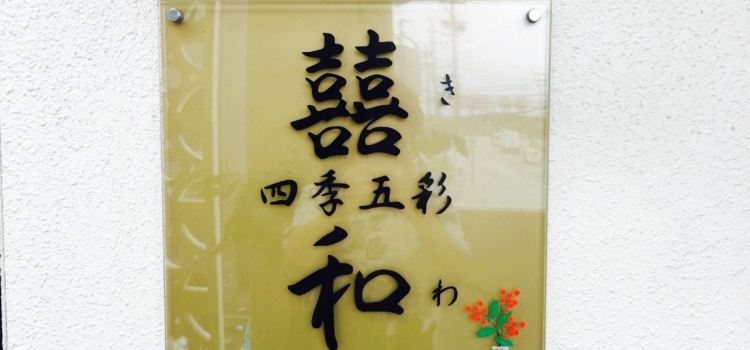 囍 き
四季五彩
和 わ